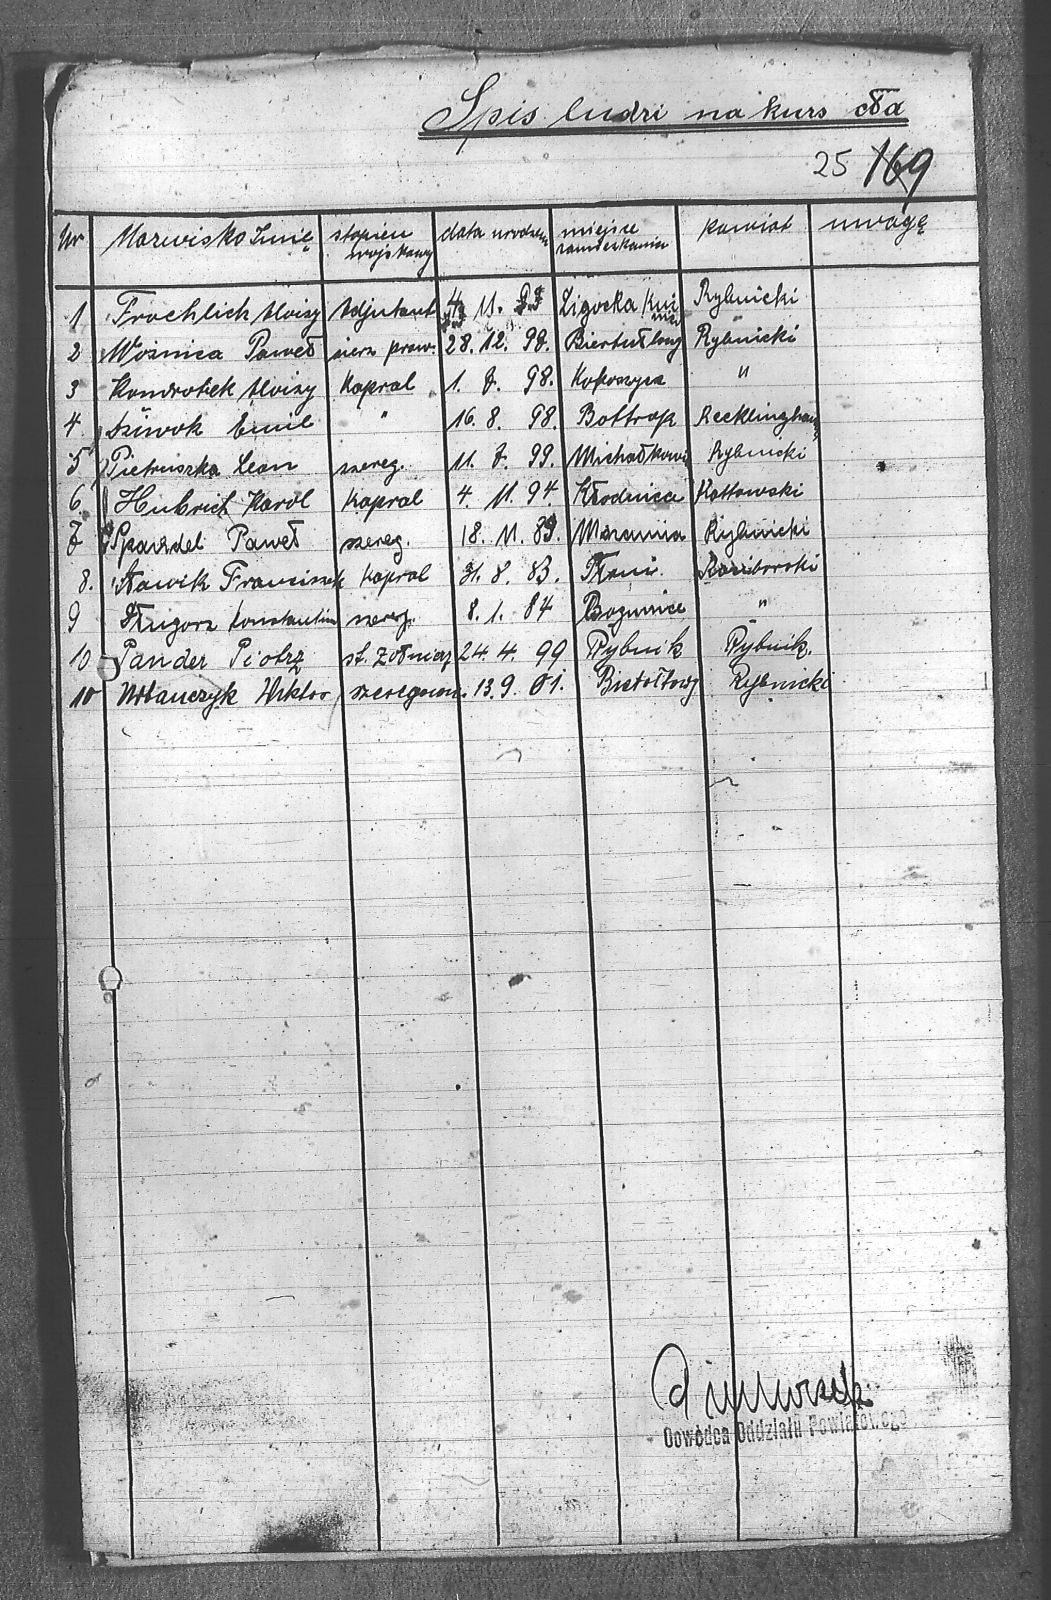 Spis ludzi na kurs
25 169
Nr Nazwisko Imię stopień wojskowy data urodzen miejsce zamieszkania powiat uwagę
1 Froehlich Aloizy Adjutant 11. Ligocka Rybnicki
2 Woźnica Paweł sierż. praw. 28. 12. 98. Biertułtowy Rybnicki
3 Kondrotek Aloizy Kapral 1. 7. 98. Kokoszyce "
4. Dziwok Emil " 16. 8. 98. Bottrop Recklinghau
5 Pietruszka Leon szereg. 11. 7. 99. Michałkowi Rybnicki
6. Hubrich Karol Kapral 4. 11. 94. Kłodnica Kattowski
7 Paweł szereg. 18. 11. 89. Marusza Rybnicki
8. Nawik Franciszek Kapral 31. 8. 83. Raciborski
9 Konstantin szereg. 8. 1. 84 Bogunice "
10 Pander Piotrz st. żołnierz 24. 4. 99 Rybnik Rybnik.
10 Urbańczyk Wiktor szeregowi. 13. 9. 01. Biełołtowy Rybnicki
Dowódca Oddziału Powiatowego